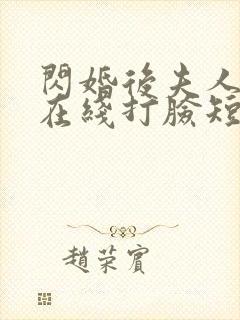 閃婚後夫人
在綫打臉短
趙荣賓